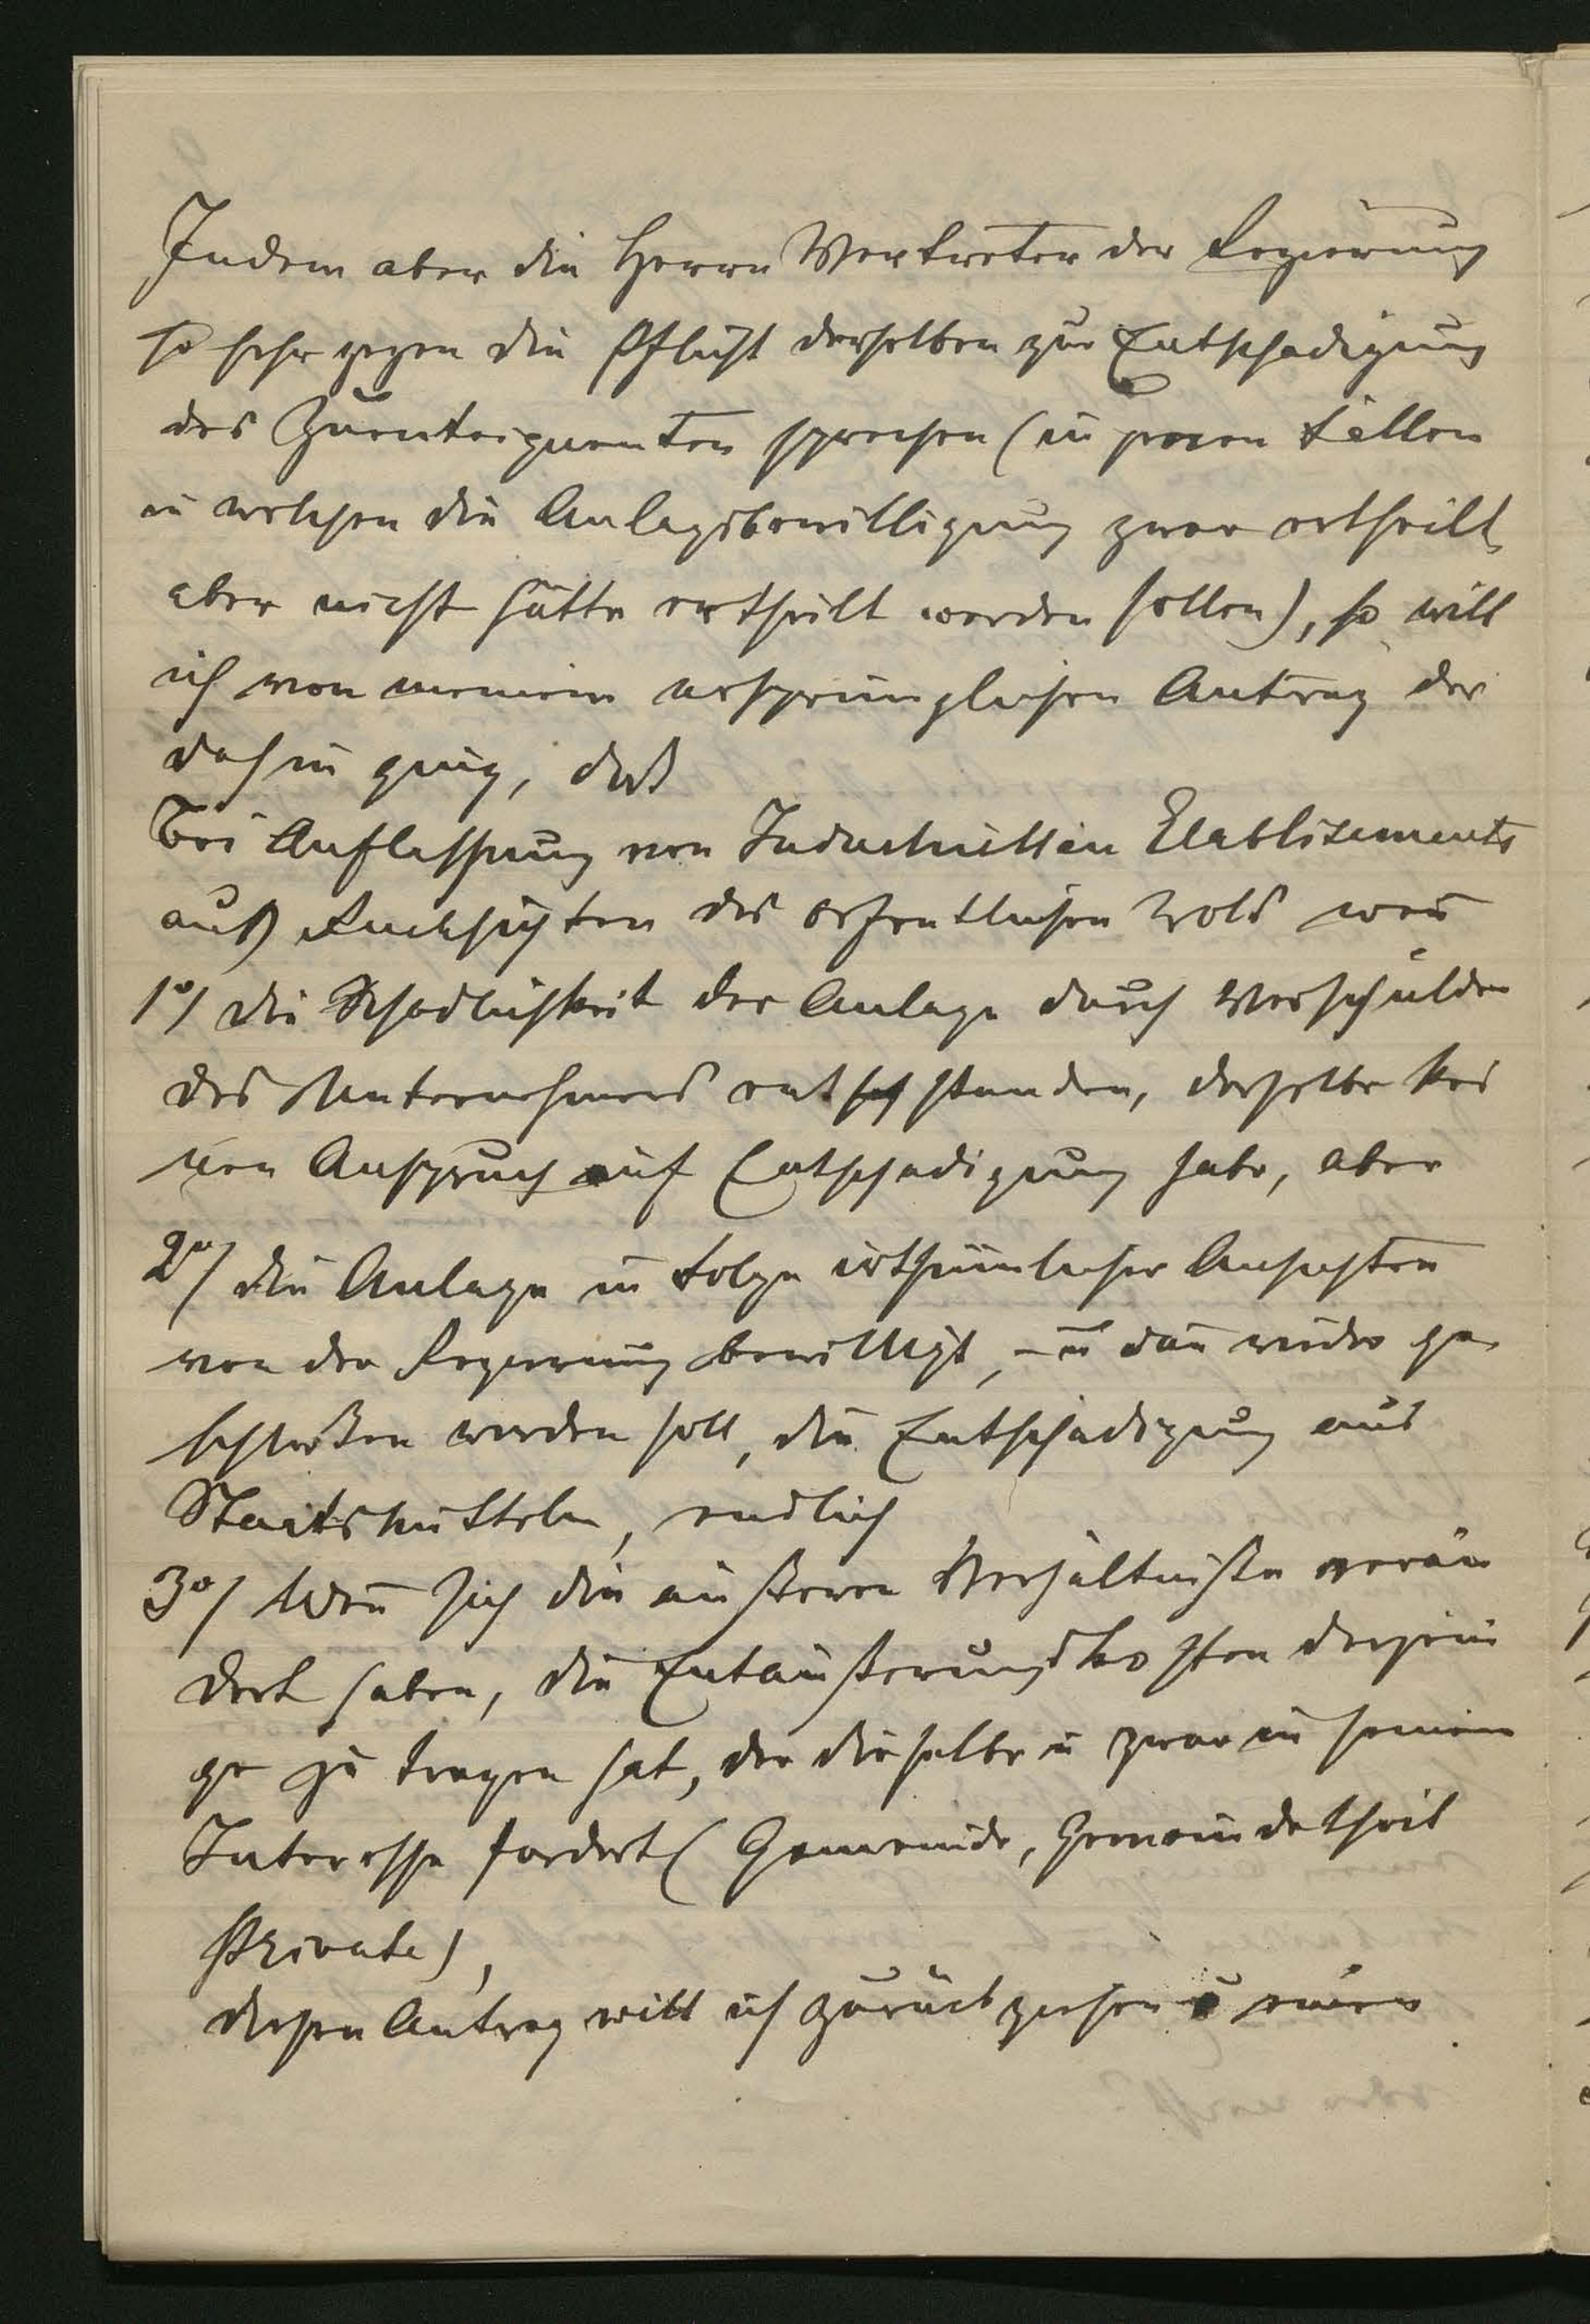 Indem aber die Herrn Vertreter der Regierung
so sehr gegen die Pflicht derselben zur Entschädigung
des Zuenteignenten sprechen (in jenen Fällen
in welchen die Anlagsbewilligung zwar ertheilt,
aber nicht hätte ertheilt werden sollen), so will
ich von meinem ursprünglichen Antrag der
dahin ging, daß
bei Auflassung von Industriellen Etablisements
auß Rucksichten des öffentlichen Wols wen
1o/ die Schadlichkeit der Anlage durch Verschulden
des Unternehmers entstanden, derselbe kei
nen Anspruch auf Entschadigung habe, aber
2o/ die Anlage in Folge irthümlicher Ansichten
von der Regierung bewilligt, – u dan wieder ge
schloßen werden soll, die Entschädigung aus
Staatsmitteln, endlich
3o/ Wen sich die äußeren Verhältniße verän
dert haben, die Entäußerungskosten derjeni
ge zu tragen hat, der dieselbe u zwar in seinem
Interesse fordert (Gemeinde, Gemeindetheil
Private),
diesen Antrag will ich zurückziehen u einen